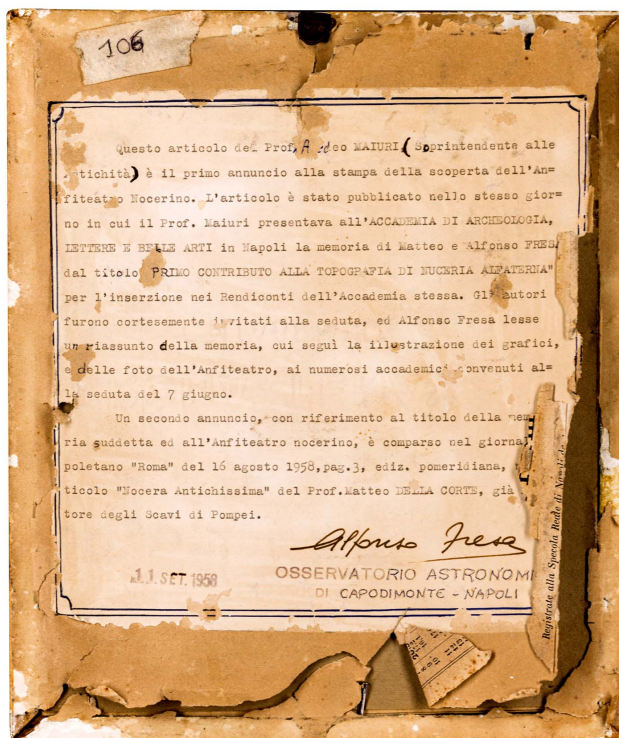 106
Questo articolo del Prof. Amedeo MAIURI (Soprintendente alle
Antichità) è il primo annuncio alla stampa della scoperta dell'An=
fiteatro Nocerino. L'articolo è stato pubblicato nello stesso gior=
no in cui il Prof. Maiuri presentava all'ACCADEMIA DI ARCHEOLOGIA,
LETTERE E BELLE ARTI in Napoli la memoria di Matteo e Alfonso FRES
dal titolo "PRIMO CONTRIBUTO ALLA TOPOGRAFIA DI NUCERIA ALFATERNA"
per l'inserzione nei Rendiconti dell'Accademia stessa. Gli autori
furono cortesemente invitati alla seduta, ed Alfonso Fresa lesse
un riassunto della memoria, cui seguì la illustrazione dei grafici,
e delle foto dell'Anfiteatro, ai numerosi accademici convenuti al=
la seduta del 7 giugno.
Un secondo annuncio, con riferimento al titolo della mem
ria suddetta ed all'Anfiteatro nocerino, è comparso nel giorna
poletano "Roma" del 16 agosto 1958, pag.3, ediz. pomeridiana,
ticolo "Nocera Antichissima" del Prof. Matteo DELLA CORTE, già
tore degli Scavi di Pompei.
Alfonso Fresa
11 SET. 1958
OSSERVATORIO ASTRONOMI
DI CAPODIMONTE - NAPOLI
Registrate alla Specola Reale di Napoli